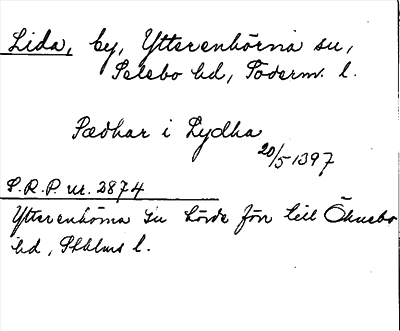 Lida, by, Ytterenhörna su,
Selebo hd, Söderm. l.
Pædhar i Lydha
20/5 1397
S.R.P. nr. 2874
Ytterenhörna su hörde förr till Öknebo
hd, Sthlms l.